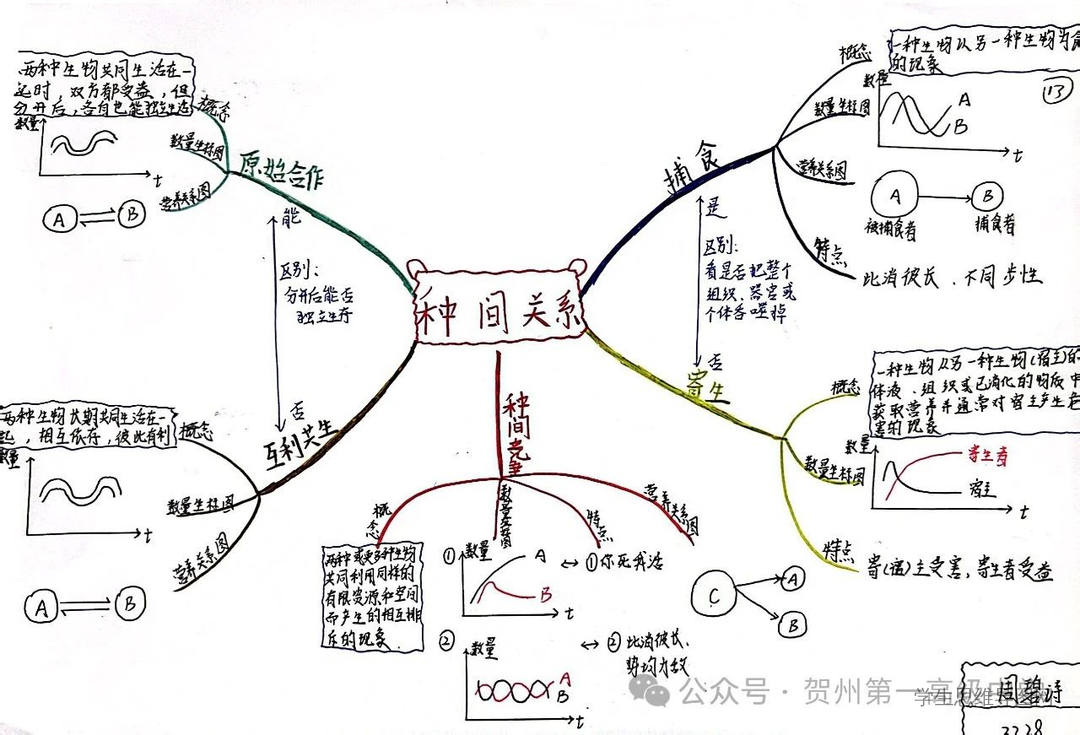 种间关系
原始合作
概念
两种生物共同生活在一
起时，双方都受益，但
分开后，各自也能独立生活
数量坐标图
数量
t
营养关系图
A
B
能
区别：
分开后能否
独立生存
否
互利共生
概念
两种生物长期共同生活在一
起，相互依存，彼此有利
数量坐标图
数量
t
营养关系图
A
B
种间竞争
概念
两种或更多种生物
共同利用同样的
有限资源和空间
而产生的相互排
斥的现象
①
数量
A
B
t
②
数量
A
B
t
特点
①你死我活
②此消彼长、
势均力敌
营养关系图
C
A
B
捕食
概念
一种生物以另一种生物为
的现象
⑬
数量坐标图
数量
A
B
t
营养关系图
A
被捕食者
B
捕食者
特点
此消彼长、不同步性
是
区别：
看是否把整个
组织、器官或
个体吞噬掉
否
寄生
概念
一种生物从另一种生物(宿主)的
体液、组织或已消化的物质中
获取营养并通常对宿主产生危
害的现象
数量坐标图
数量
寄生者
宿主
t
特点
寄(宿)主受害，寄生者受益
公众号·贺州第一高级中
学生思维
周碧诗
2228